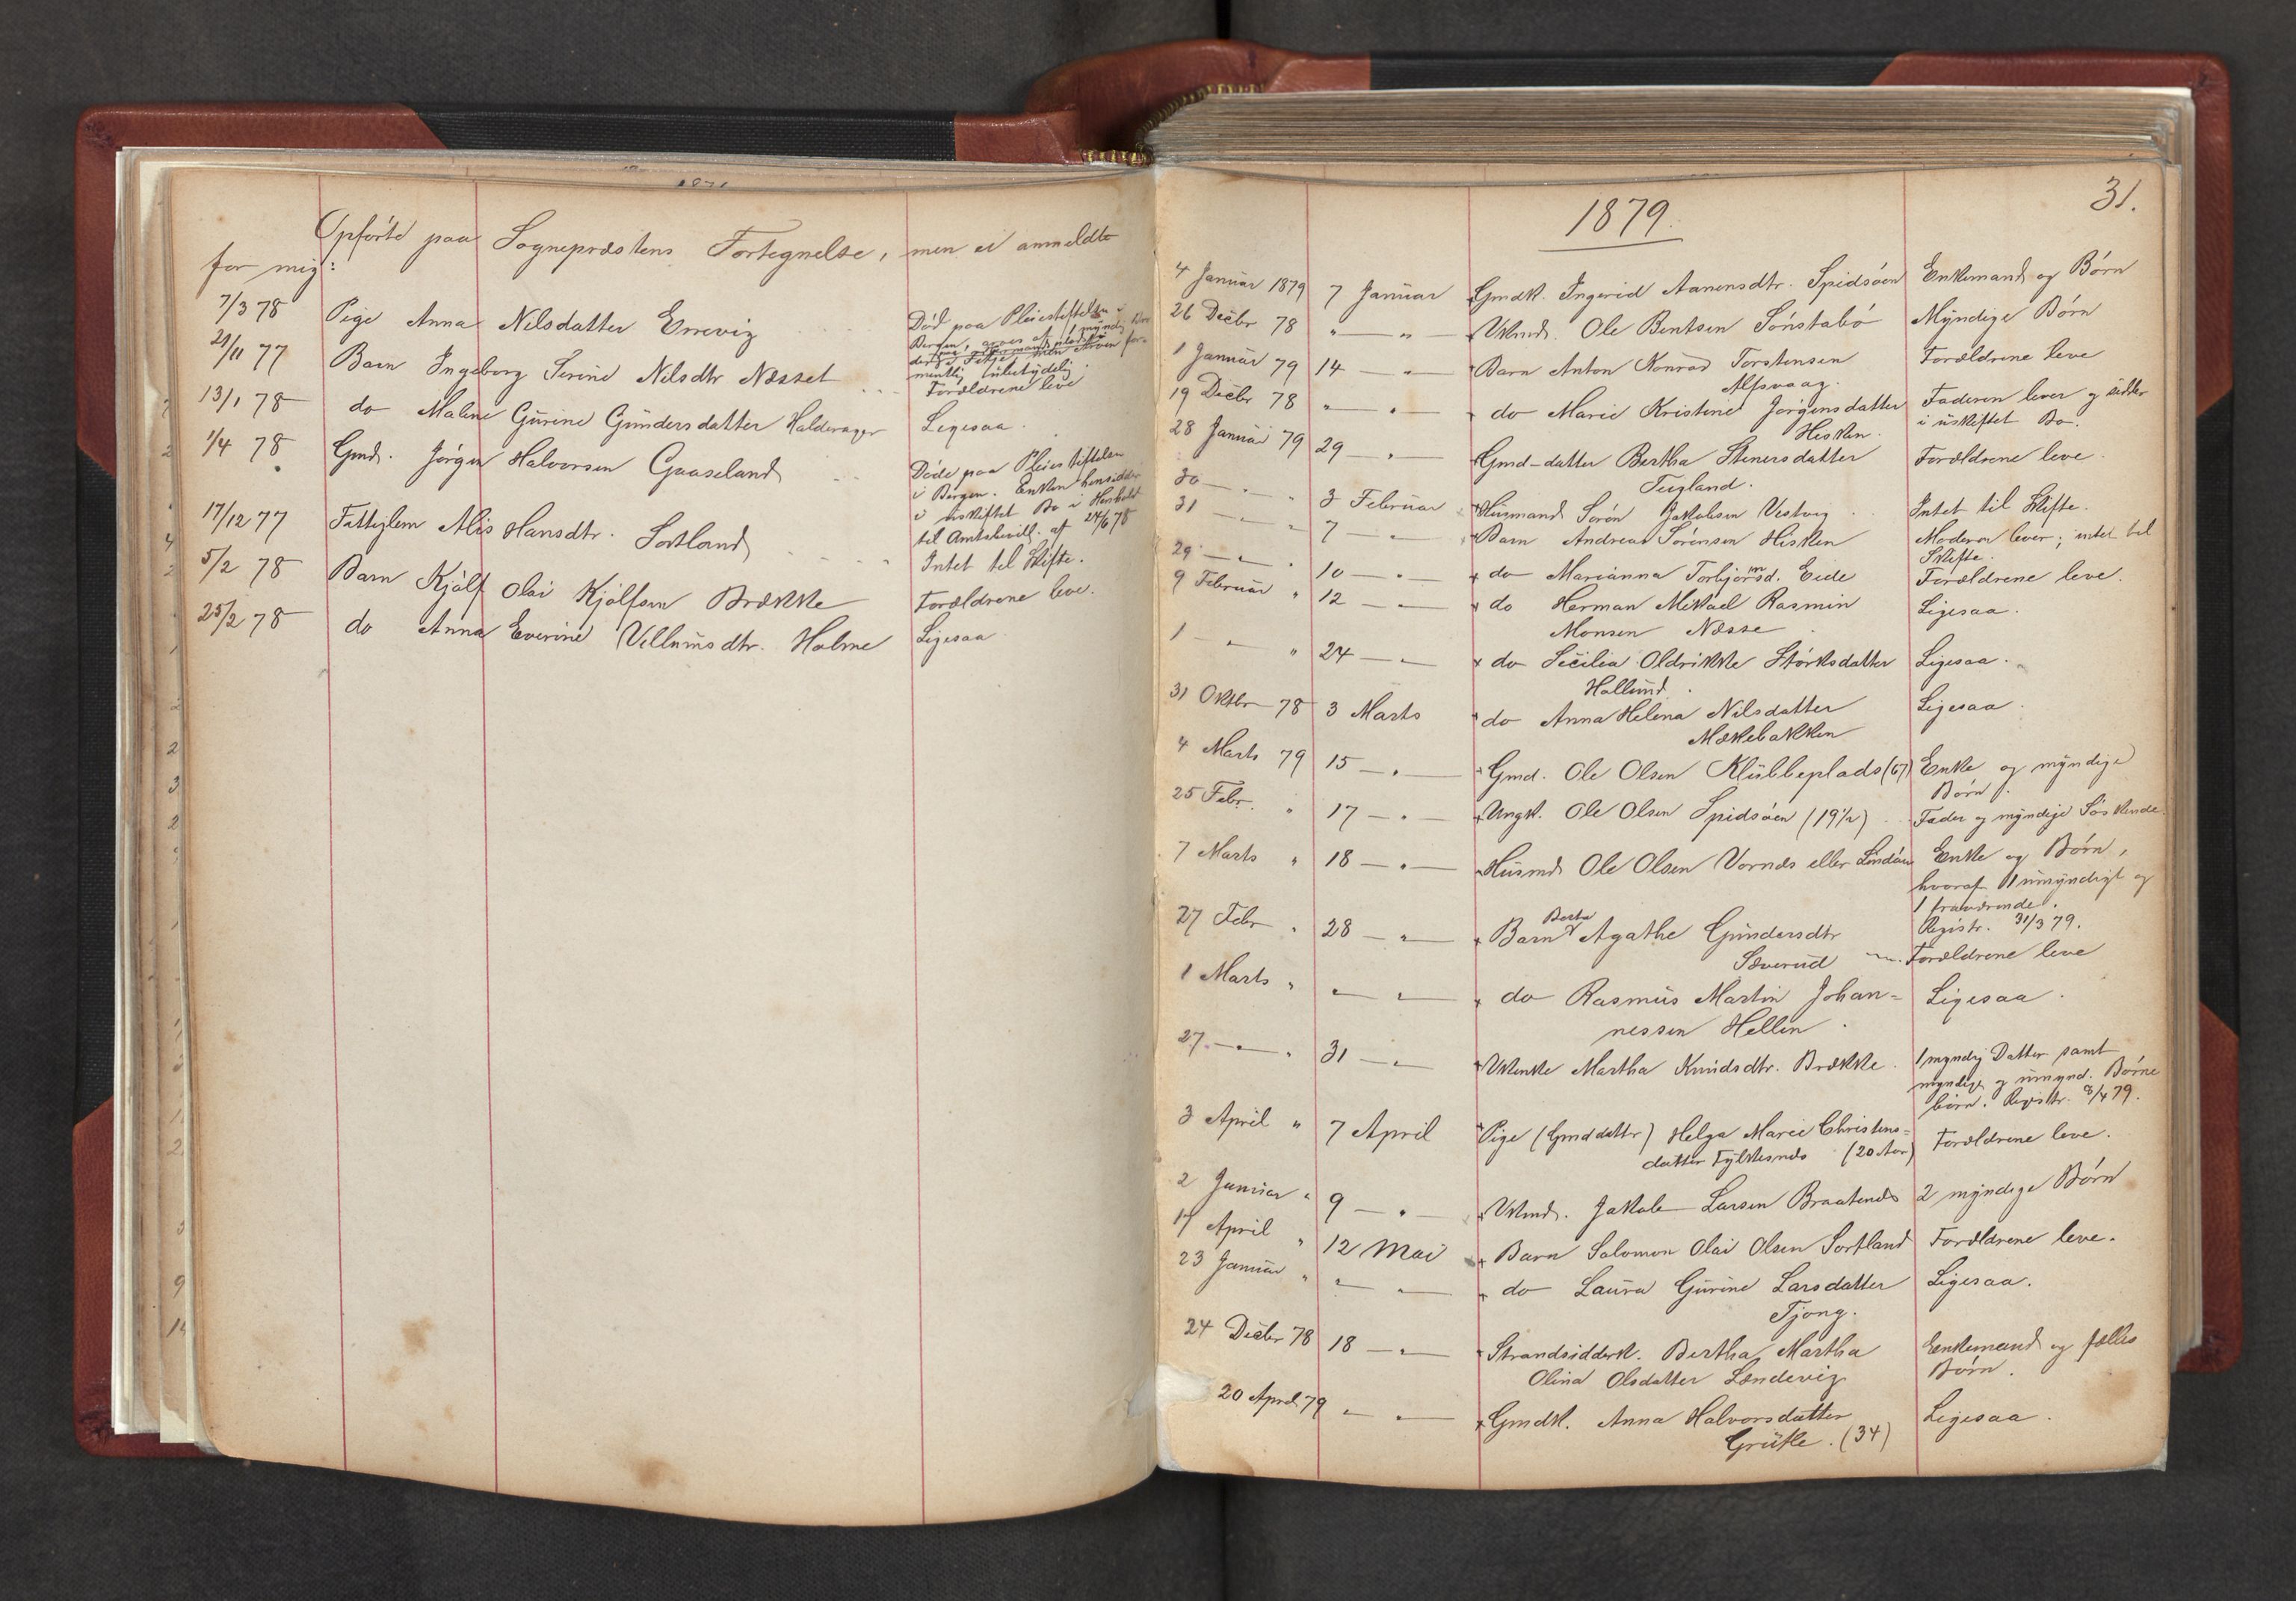 Opførte paa Sognepræstens Fortegnelse, men ei anmeldte
for mig:
7/3 78 Pige Anna Nilsdatter Errevig Død paa Pleiestiftelsen i
Bergen, arves af 1 myndig
men Arven for-
mentlig ubetydelig.
29/11 77 Barn Ingeborg Serine Nilsdtr Næsset Forældrene leve
13/1 78 do Malene Gurine Gundersdatter Halderager Ligesaa.
1/4 78 Gmd. Jørgen Halvorsen Gaaseland Døde paa Pleiestiftelsen
i Bergen. Enken hensidder
i uskiftet Bo i Henhold
til Amtsbevill. af 24/6 78
17/12 77 Fattiglem Alis Hansdtr. Sortland Intet til Skifte.
5/2 78 Barn Kjølf Olai Kjølfsen Brække Forældrene leve.
25/2 78 do Anna Everine Villumsdtr. Holme Ligesaa
31.
1879.
4 Januar 1879 7 Januar Gmdk. Ingerid Aanensdtr. Spidsøen Enkemand og Børn
26 Decbr 78 " — " — Vkmd. Ole Bentsen Sønstabø Myndige Børn
1 Januar 79 14 — " — Barn Anton Konrad Torstensen Forældrene leve
Alfsvaag.
19 Decbr 78 " — " — do Marie Kristine Jørgensdatter Faderen lever og sidder
Hisken. i uskiftet Bo.
28 Januar 79 29 — " — Gmd-datter Bertha Stenersdatter Forældrene leve.
Tugland.
30 — " — " 3 Februar Husmand Søren Jakobsen Vestvig Intet til Skifte.
31 — " — " 7 — " — Barn Andreas Sørensen Hisken Moderen lever; intet til
Skifte.
29 — " — " 10 — " — do Marianna Torbjørnsd. Eide Forældrene leve.
9 Februar " 12 — " — do Herman Mikael Rasmin Ligesaa.
Monsen Næsse
1 — " — " 24 — " — do Secilia Oldrikke Størksdatter Ligesaa.
Hallund.
31 Oktbr 78 3 Marts do Anna Helena Nilsdatter Ligesaa.
Mækebakken
4 Marts 79 15 — " — Gmd. Ole Olsen Klubbeplads (67) Enke og myndige
Børn.
25 Febr. " 17 — " — Ungk. Ole Olsen Spidsøen (19½) Fader og myndige Søskende
7 Marts " 18 — " — Husmd. Ole Olsen Vornæs eller Lindøen Enke og Børn,
hvoraf 1 umyndigt og
1 fraværende.
Registr. 31/3 79.
27 Febr " 28 — " — Barn Berta Agathe Gundersdtr
Sæverud Forældrene leve
1 Marts " " — " — do Rasmus Martin Johan- Ligesaa.
nessen Hellen.
27 — " — " 31 — " — Vkenke Martha Knudsdtr. Brække. 1 myndig Datter samt
myndige og umynd. Børne
børn. Registr. 8/4 79.
3 April " 7 April Pige (Gmddatter) Helga Marie Christens- Forældrene leve.
datter Fylkesnæs (20 Aar)
2 Januar " 9 — " — Vkmd. Jakob Larsen Braatenæs 2 myndige Børn
17 April " 12 Mai Barn Salomon Olai Olsen Sortland Forældrene leve.
23 Januar " " — " — do Laura Gurine Larsdatter Ligesaa.
Tjong.
24 Decbr 78 18 — " — Strandsidderk. Bertha Martha Enkemand og fælles
Olina Olsdatter Lændevig Børn.
20 April 79 " — " — Gmdk. Anna Halvorsdatter Ligesaa.
Grutle. (34)